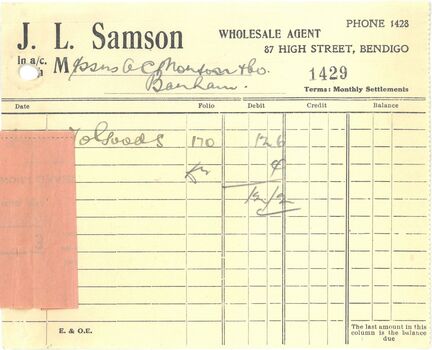 J. L. Samson
WHOLESALE AGENT
PHONE 1428
87 HIGH STREET, BENDIGO
In a/c.
Messrs A C & Co.
Barham.
1429
Terms: Monthly Settlements
Date Folio Debit Credit Balance
To Goods 170 12 6
4
12/2
E. & O.E.
The last amount in this
column is the balance
due